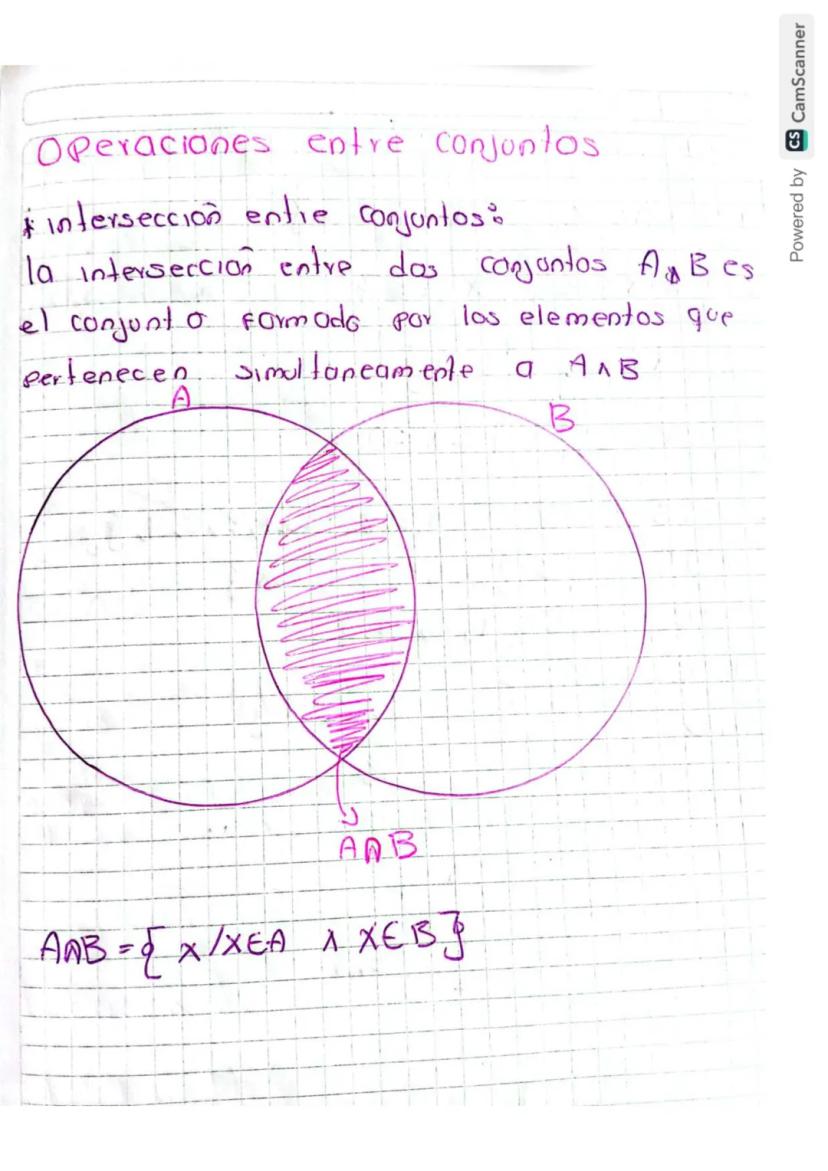 Operaciones entre conjuntos
* intersección entre conjuntos:
la intersección entre dos conjuntos A ∧ B es
el conjunto formado por los elementos que
pertenecen simultaneamente a A ∧ B
A
B
A∩B
A∩B = { x/x∈A ∧ x∈B }
Powered by CS CamScanner